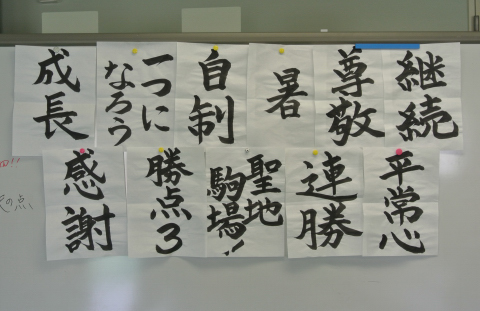 継続
尊敬
暑
自制
一つに
なろう
成長
平常心
連勝
聖地
駒場!!
勝点3
感謝
の点、